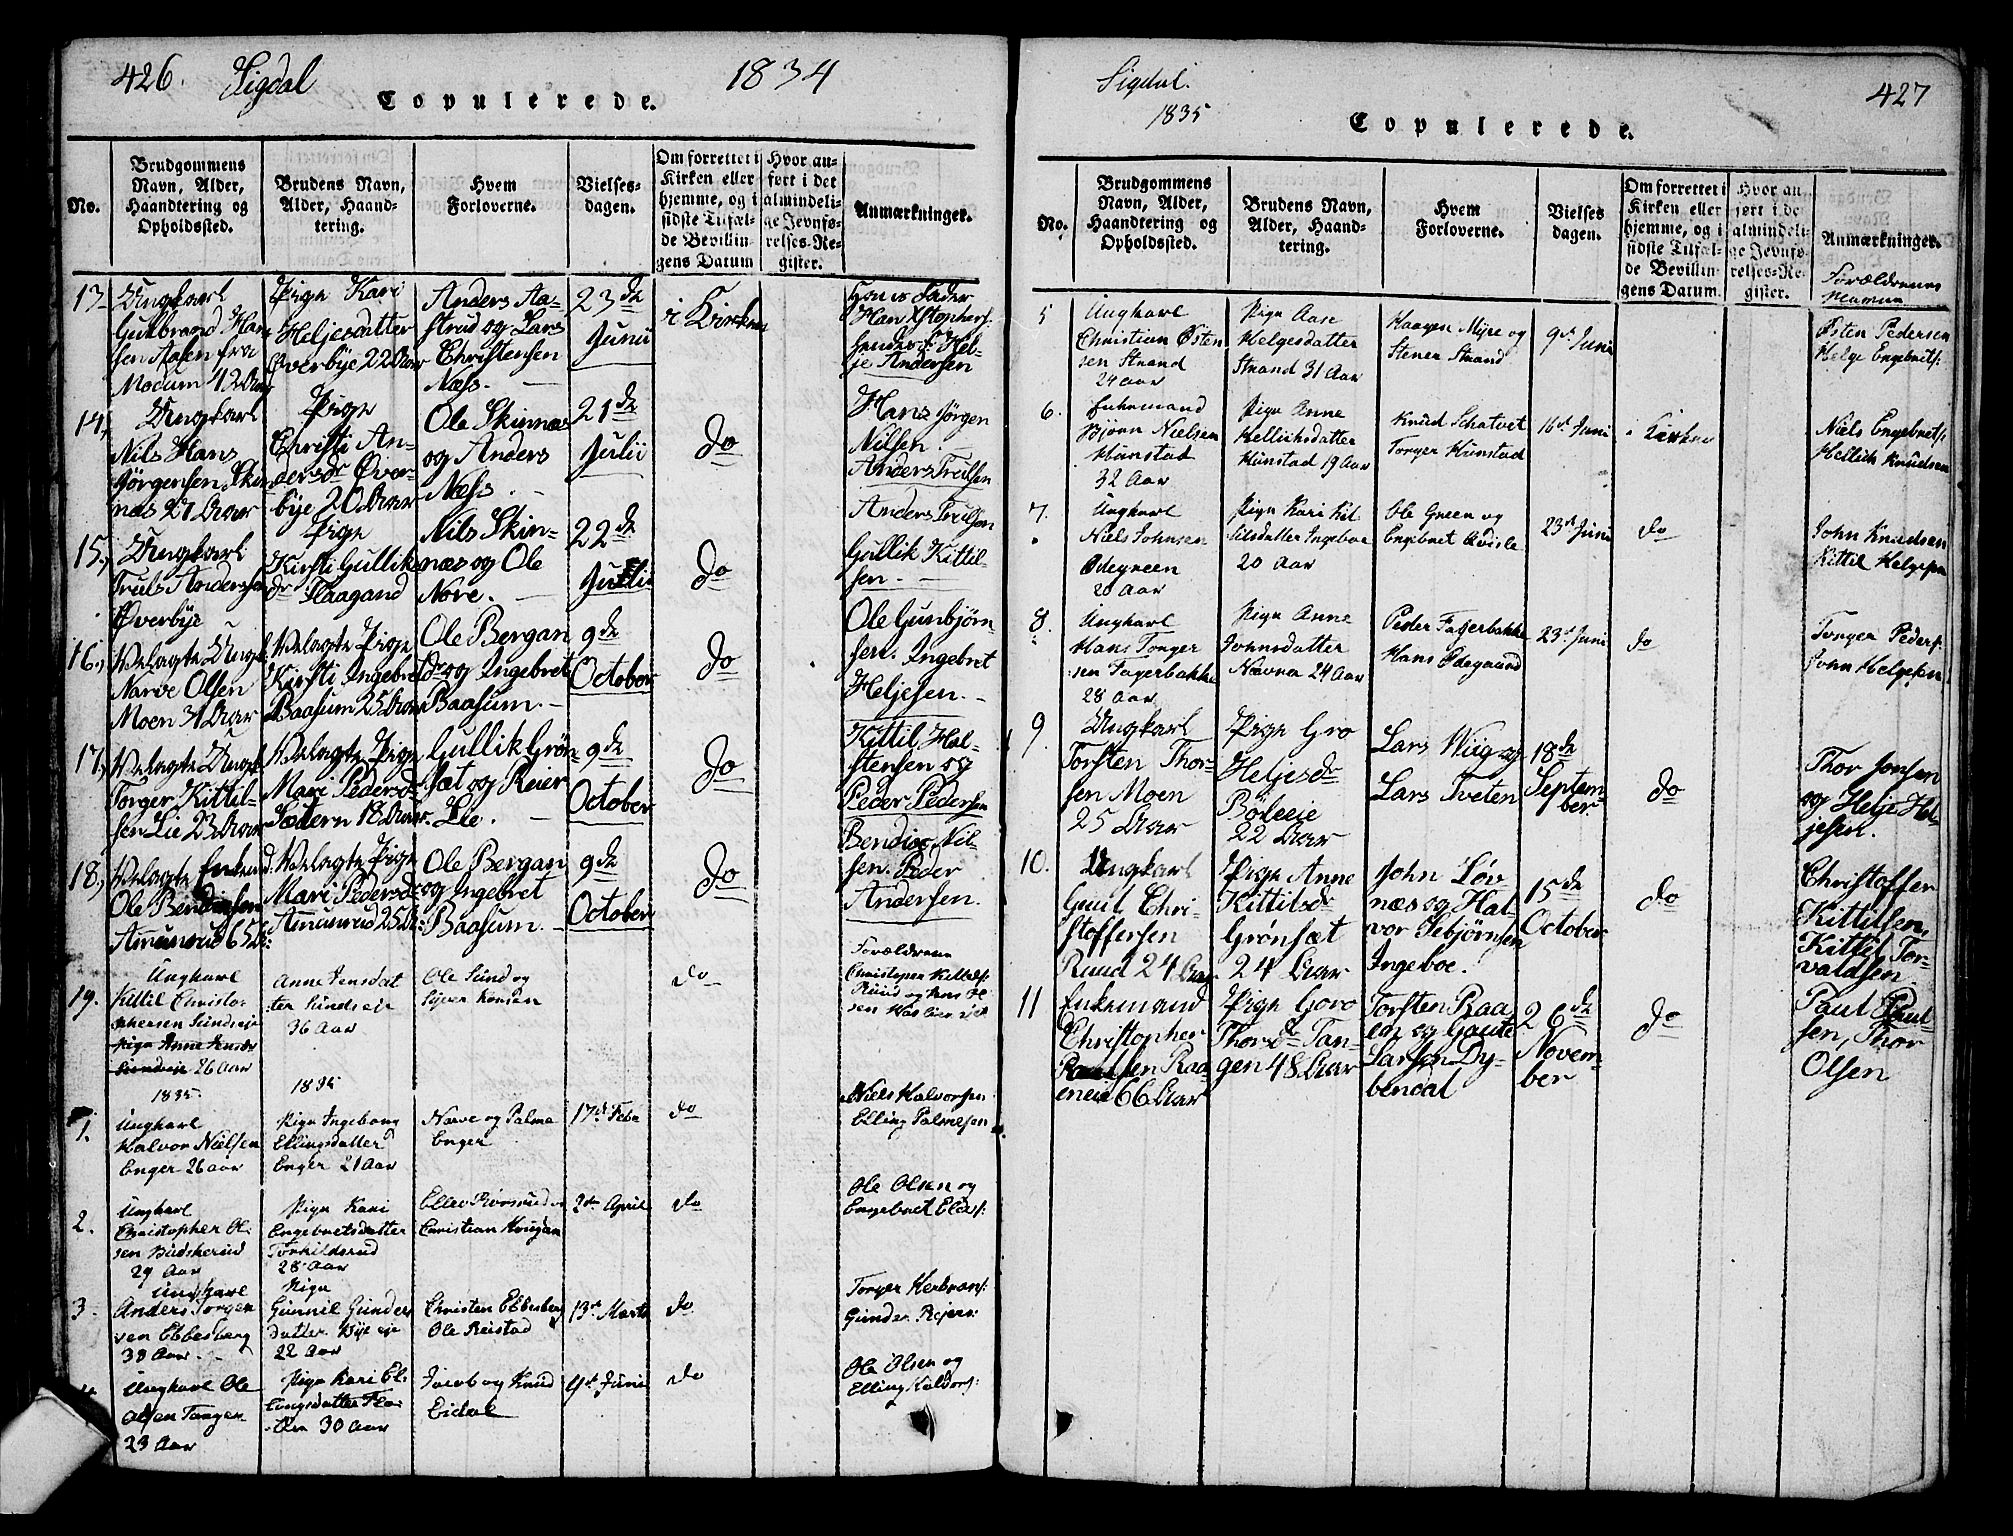 426. Sigdal
Copulerede.
1834
No.
Brudgommens
Navn, Alder,
Haandtering og
Opholdssted.
Brudens Navn,
Alder, Haand-
tering.
Hvem
Forloverne.
Vielses-
dagen.
Om forrettet i
Kirken eller
hjemme, og i
sidste Tilfæl-
de Bevillin-
gens Datum
Hvor an-
ført i det
almindeli-
ge Jevnfø-
relses-Re-
gister.
Anmærkninger.
13
Ungkarl
Gulbrand Han
sen Aasen fra
Modum 42 Aar
Pige Kari
Heljesdatter
Overbye 22 Aar
Anders Aa-
strud og Lars
Christensen
Næss.
23de
Junii
i Kirken
Hans Fader
Han Xstophers:
hendes: Hel-
je Andersen
14,
Ungkarl
Nils Hans
Jørgensen Skin
næs 27 Aar
Pige
Christi An-
dersdr Över-
bye 20 Aar
Ole Skinnæs
og Anders
Næss.
21de
Julii
do
Hans Jørgen
Nilsen.
Anders Trulsen
15,
Ungkarl
Truls Andersen
Øverbye
Pige
Kirsti Gullik
dr Flaagand
Nils Skin-
næs og Ole
Nore.
22de
Julii
do
Anders Trulsen
Gullik Kittil-
sen.
16,
Velagte Ungk
Narve Olsen
Moen 31 Aar
Velagte Pige
Kirsti Ingebret
Baasum 25 Aar
Ole Bergan
dr og Ingebret
Baasum.
9de
October
do
Ole Gunbjørn-
sen. Ingebret
Heljesen.
17,
Velagte Ungk
Torger Kittil-
sen Lie 23 Aar
Velagte Pige
Mari Pedersd
Sætern 18 Aar.
Gullik Grøn
sæt og Reier
Lie.
9de
October
do
Kittil Hal-
stensen og
Peder Pedersen
18,
Velagte Enkend
Ole Bendixsen
Amunrud 65
Velagte Pige
Mari Pedersd:
Amunrud 25
Ole Bergan
og Ingebret
Baasum.
9de
October
do
Bendix Nil-
sen. Peder
Andersen.
19.
Ungkarl
Kittil Christo-
phersen Sundseje
Pige Anne Jensdr
Sundseje 26 Aar
Anne Jensdat
ter Sundseje
36 Aar
Ole Sund og
do
Forældrene
Christopher Kittels:
Ruud og Jens Ol-
sen
1835.
1835
1.
Ungkarl
Halvor Nielsen
Enger 26 aar
Pige Ingeborg
Ellingsdatter
Enger 21 Aar
Narve og Palme
Enger
17d Febr
do
Niels Halvorsen
Elling Palmesen
2.
Ungkarl
Christopher Ol-
sen Budskerud
29 Aar
Pige Kari
Engebretsdatter
Torkildsrud
28 Aar
Christian Haugan
2den April
do
Ole Olsen og
Engebret Elevs:
3.
Ungkarl
Anders Torger
sen Ebbesberg
38 Aar
Pige
Gunnil Gunders
datter Bye eje
22 Aar
Christen Ebbesberg
Ole Reistad
13de Marts
do
Torger Herbrans:
Gunder Rejers:
Ungkarl Ole
Olsen Tangen
23 Aar
Pige Kari El-
lingsdatter Flo-
30 Aar
Jacob og Knud
Eidal
4de Juni
do
Ole Olsen og
Elling Haldors:
Sigdal.
1835
Copulerede.
427
No.
Brudgommens
Navn, Alder,
Haandtering og
Opholdssted.
Brudens Navn,
Alder, Haand-
tering.
Hvem
Forloverne.
Vielses
dagen.
Om forrettet i
Kirken eller
hjemme, og i
sidste Tilfæl-
de Bevillin-
gens Datum.
Hvor an-
ført i de
almindeli-
ge Jevnfø-
relses-Re-
gister.
Anmærkninger.
Forældrenes
Navne
5
Ungkarl
Christian Østen
sen Strand
24 aar
Pige Aase
Helgesdatter
Strand 31 Aar
Haagen Mipe og
Stener Strand
9de Juni
Østen Pedersen
Helge Engebrets:
6.
Enkemand
Bjørn Nielsen
Hunstad
32 Aar
Pige Anne
Hellichsdatter
Hunstad 19 Aar
Knud Schatvet
Torger Hunstad
16d Juni
i Kirken
Niels Engebrets:
Hellich Knudsen
7.
Ungkarl
Niels Johnsen
Ødegreen
20 Aar
Pige Kari Kit-
tilsdatter Ingeboe
20 Aar
Ole Green og
Engebret Qvisle
23d Juni
do
John Knudsen
Kittil Helgesen
8.
Ungkarl
Hans Torger
sen Fagerbakke
28 Aar
Pige Anne
Johnsdatter
Nævra 24 Aar
Peder Fagerbakke
Hans Ødegaard
23d Juni
do
Torger Peders:
John Helgesen
9
Ungkarl
Torsten Thor-
sen Moen
25 Aar
Pige Gro
Heljesdr
Böleeie
22 Aar
Lars Wiig og
Lars Tveten
18de
Septem-
ber
do
Thor Jonsen
og Helje Hel-
jesen.
10.
Ungkarl
Guul Chri-
stoffersen
Ruud 24 Aar
Pige Anne
Kittilsdr
Grönsæt
24 Aar
John Løv
næs og Hal-
vor Sebjørnsen
Ingeboe.
15de
October
do
Christoffer
Kittilsen,
Kittil Tor-
valdsen
11
Enkemand
Christopher
Paulsen Raa-
eneie 66 Aar
Pige Goro
Thorsdr Tan-
gen 48 Aar
Torsten Raa
en og Gaute
Larsen Dy-
bendal
26de
Novem-
ber
do
Paul Paul-
sen, Thor
Olsen